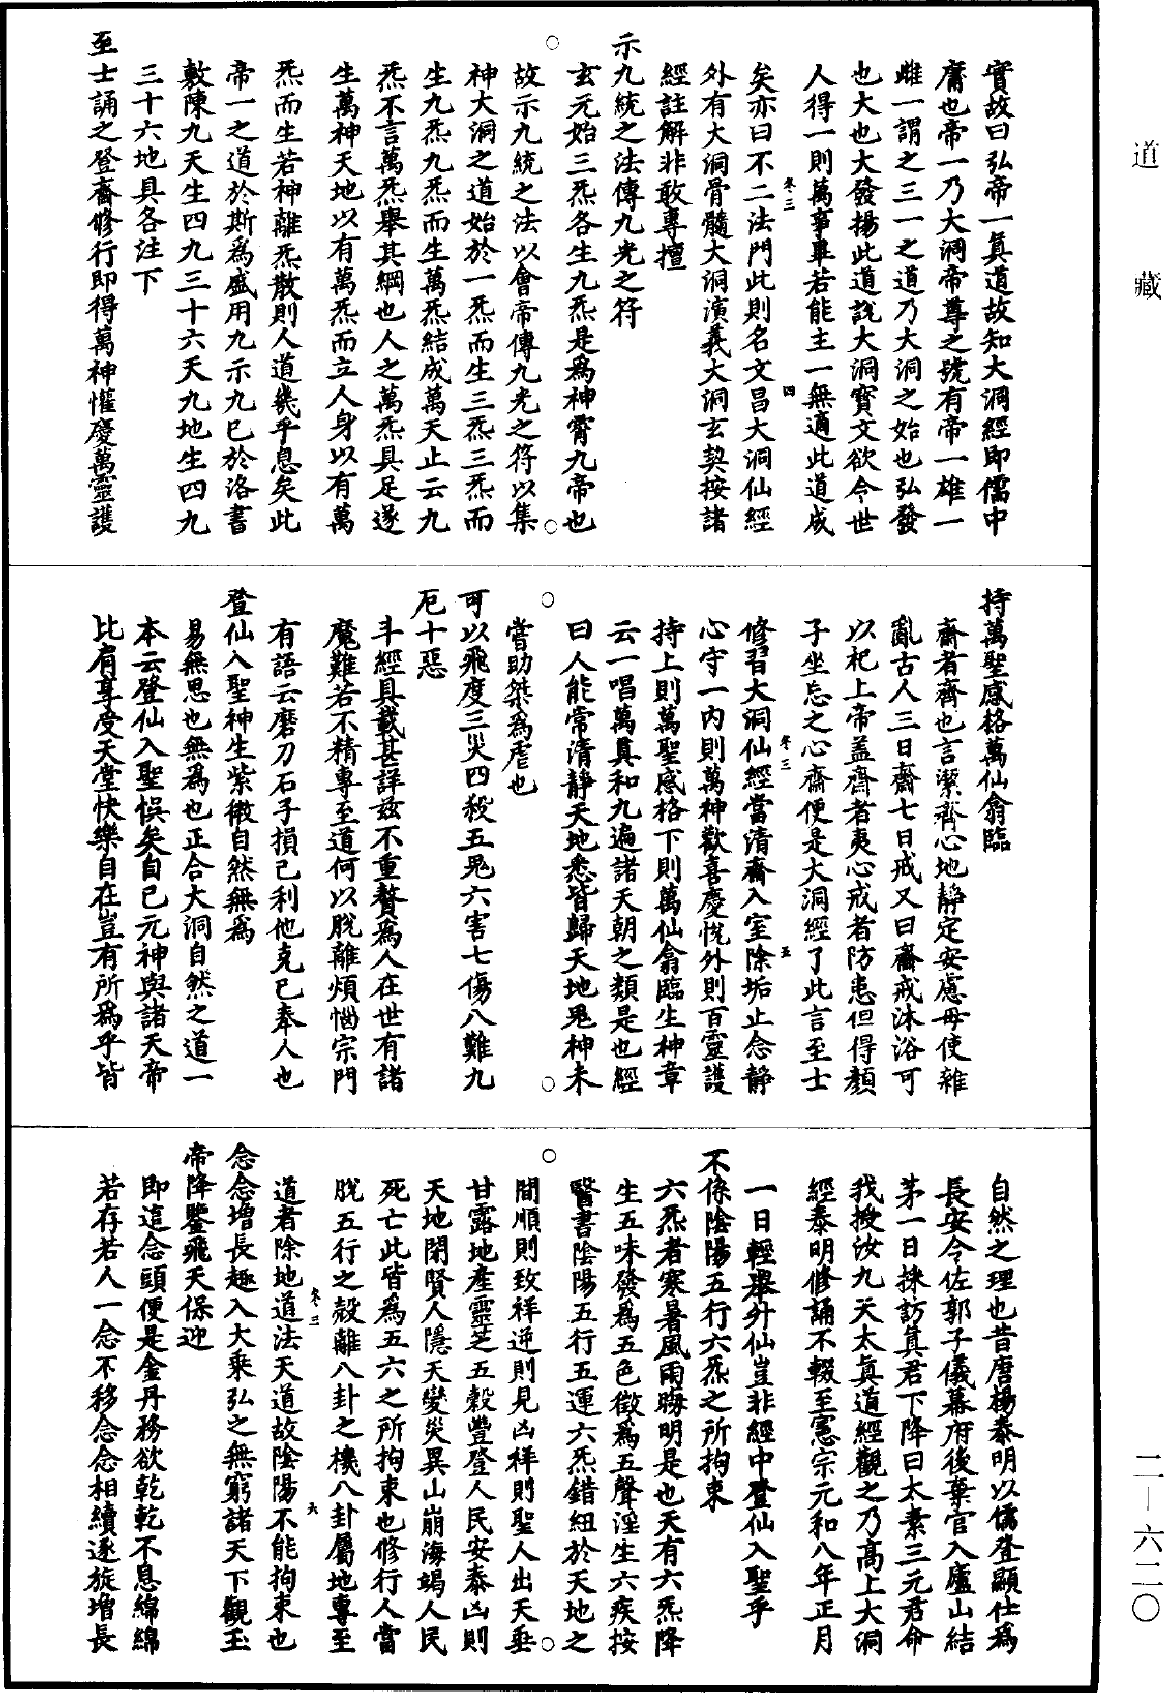 道藏
二—六二〇
實故曰弘帝一真道故知大洞經即儒中
庸也帝一乃大洞帝尊之號有帝一雄一
雌一謂之三一之道乃大洞之始也弘發
也大也大發揚此道說大洞寶文欲令世
人得一則萬事畢若能主一無適此道成
冬三 四
矣亦曰不二法門此則名文昌大洞仙經
外有大洞骨髓大洞演義大洞玄契按諸
經註解非敢專擅
示九統之法傳九光之符
玄元始三炁各生九炁是為神霄九帝也
故示九統之法以會帝傳九光之符以集
神大洞之道始於一炁而生三炁三炁而
生九炁九炁而生萬炁結成萬天止云九
炁不言萬炁舉其綱也人之萬炁具足遂
生萬神天地以有萬炁而立人身以有萬
炁而生若神離炁散則人道幾乎息矣此
帝一之道於斯為盛用九示九已於洛書
敷陳九天生四九三十六天九地生四九
三十六地具各注下
至士誦之登齋修行即得萬神懽慶萬靈護
持萬聖感格萬仙翕臨
齋者齊也言潔齊心地靜定安慮毋使雜
亂古人三日齋七日戒又曰齋戒沐浴可
以祀上帝盖齋者夷心戒者防患但得顏
子坐忘之心齋便是大洞經了此言至士
冬三 五
修習大洞仙經當清齋入室除垢止念靜
心守一內則萬神歡喜慶悅外則百靈護
持上則萬聖感格下則萬仙翕臨生神章
云一唱萬真和九遍諸天朝之類是也經
曰人能常清靜天地悉皆歸天地鬼神未
嘗助桀為虐也
可以飛度三災四殺五鬼六害七傷八難九
厄十惡
斗經具載甚詳茲不重贅為人在世有諸
魔難若不精專至道何以脫離煩惱宗門
有語云磨刀石子損己利他克己奉人也
登仙入聖神生紫微自然無為
易無思也無為也正合大洞自然之道一
本云登仙入聖悞矣自己元神與諸天帝
比肩享受天堂快樂自在豈有所為乎皆
自然之理也昔唐楊泰明以儒登顯仕為
長安令佐郭子儀幕府後棄官入廬山結
茅一日採訪真君下降曰太素三元君命
我授汝九天太真道經觀之乃高上大洞
經泰明修誦不輟至憲宗元和八年正月
一日輕舉升仙豈非經中登仙入聖乎
不係陰陽五行六炁之所拘束
六炁者寒暑風雨晦明是也天有六炁降
生五味發為五色徵為五聲淫生六疾按
醫書陰陽五行五運六炁錯紐於天地之
間順則致祥逆則見凶祥則聖人出天垂
甘露地產靈芝五穀豐登人民安泰凶則
天地閉賢人隱天變災異山崩海竭人民
死亡此皆為五六之所拘束也修行人當
脫五行之殼離八卦之機八卦屬地專至
冬三 六
道者除地道法天道故陰陽不能拘束也
念念增長趣入大乘弘之無窮諸天下觀玉
帝降鑒飛天保迎
即這念頭便是金丹務欲乾乾不息綿綿
若存若人一念不移念念相續逐旋增長